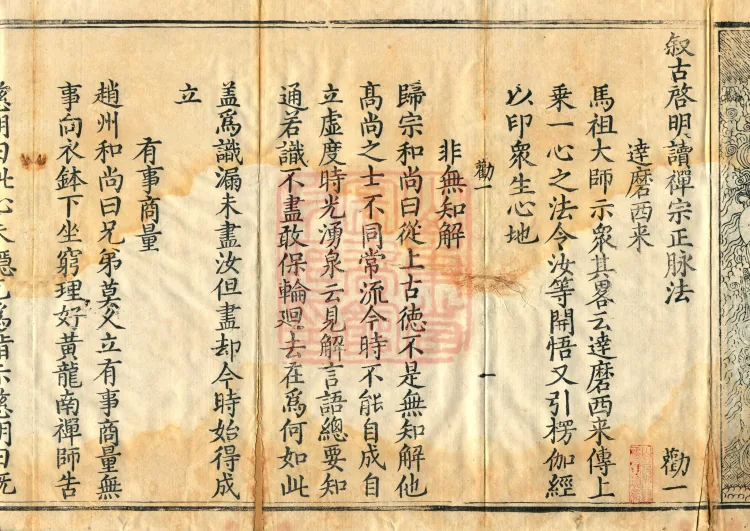 叙古啓明讀禪宗正脉法 勸一
達磨西来
馬祖大師示衆其畧云達磨西来傳上
乗一心之法令汝等開悟又引楞伽經
以印衆生心地
勸一 一
非無知解
歸宗和尚曰從上古徳不是無知解他
髙尚之士不同常流今時不能自成自
立虚度時光湧泉云見解言語總要知
通若識不盡敢保輪廻去在爲何如此
盖爲識漏未盡汝但盡却今時始得成
立
有事商量
趙州和尚曰兄弟莫久立有事商量無
事向衣鉢下坐窮理好黄龍南禪師告
慈明曰此心未隠乞爲指示慈明曰既